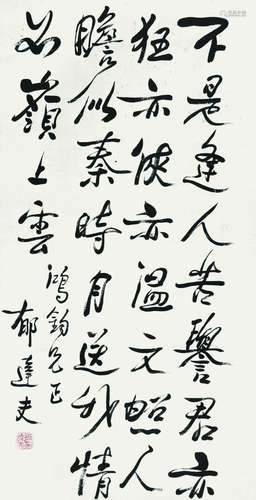 不是逢人苦譽君亦
狂亦俠亦溫文照人
膽似秦時月送我情
如嶺上雲
鴻鈞兄正
郁達夫